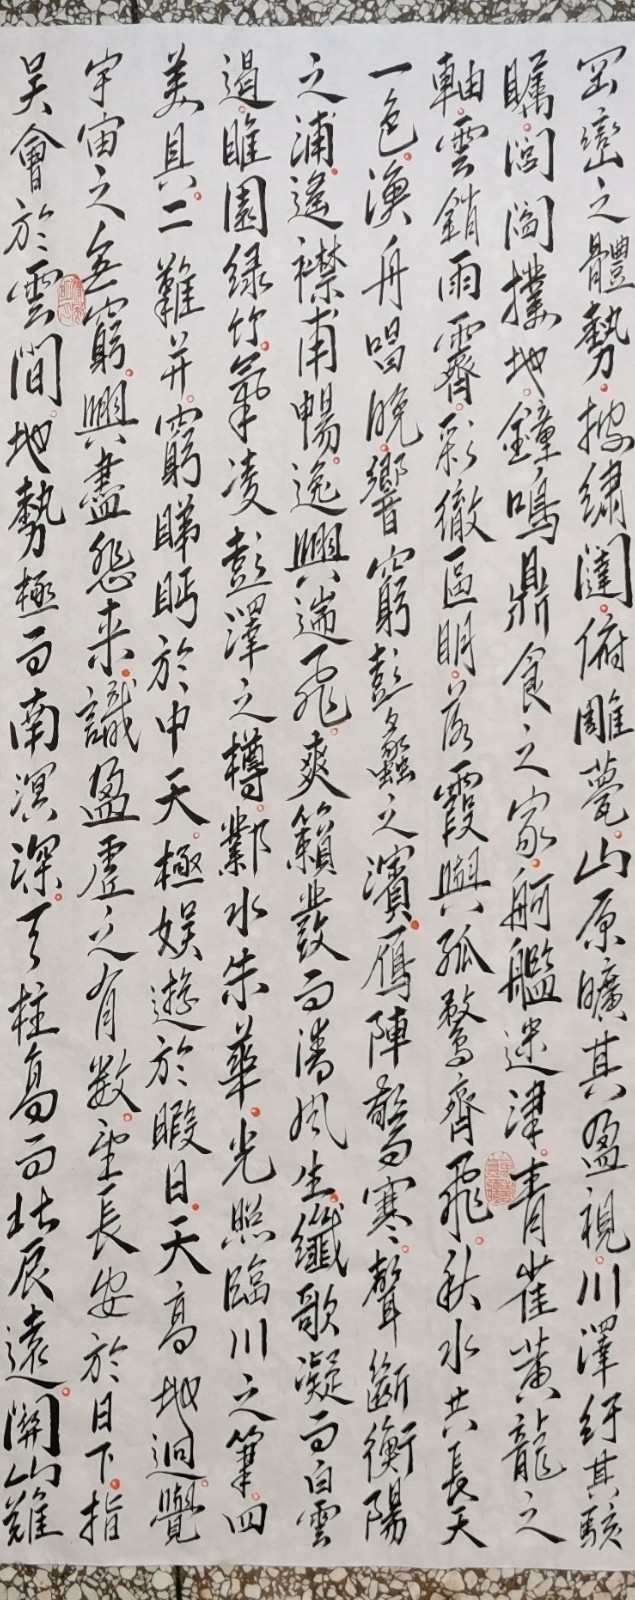 罡巒之體勢披繡闥俯雕甍山原曠其盈視川澤紆其駭
矚閭閻撲地鐘鳴鼎食之家舸艦迷津青雀黃龍之
軸雲銷雨霽彩徹區明落霞與孤鶩齊飛秋水共長天
一色漁舟唱晚響窮彭蠡之濱雁陣驚寒聲斷衡陽
之浦遙襟甫暢逸興遄飛爽籟發而清風生纖歌凝而白雲
遏睢園绿竹氣凌彭澤之樽鄴水朱華光照臨川之筆四
美具二難并窮睇眄於中天極娱遊於暇日天高地迥覺
宇宙之無窮興盡悲来識盈虛之有数望長安於日下指
吴會於雲間地勢極而南溟深天柱高而北辰遠關山難